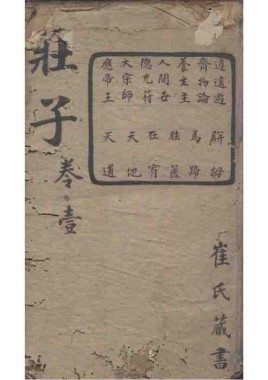 莊子
卷壹
逍遙遊
齊物論
養生主
人間世
德充符
大宗師
應帝王
駢拇
馬蹄
胠篋
在宥
天地
天道
崔氏藏書